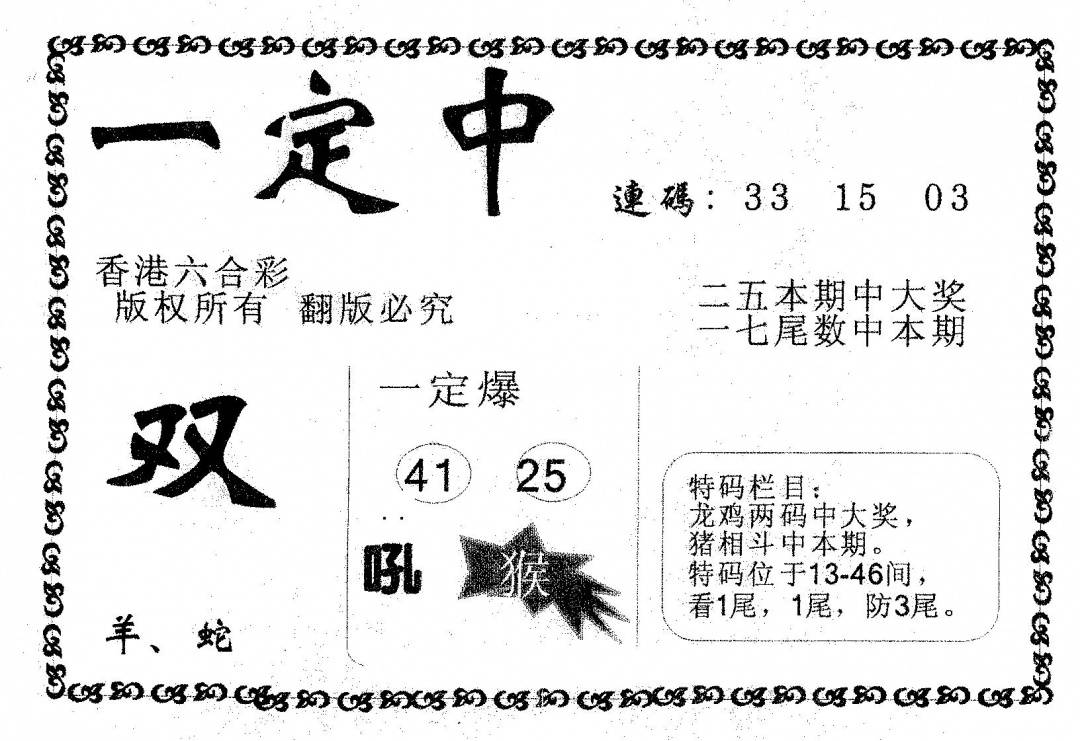 一定中
連碼：33 15 03
香港六合彩
版权所有 翻版必究
二五本期中大奖
一七尾数中本期
双
羊、蛇
一定爆
41 25
吼 猴
特码栏目：
龙鸡两码中大奖，
猪相斗中本期。
特码位于13-46间，
看1尾，1尾，防3尾。